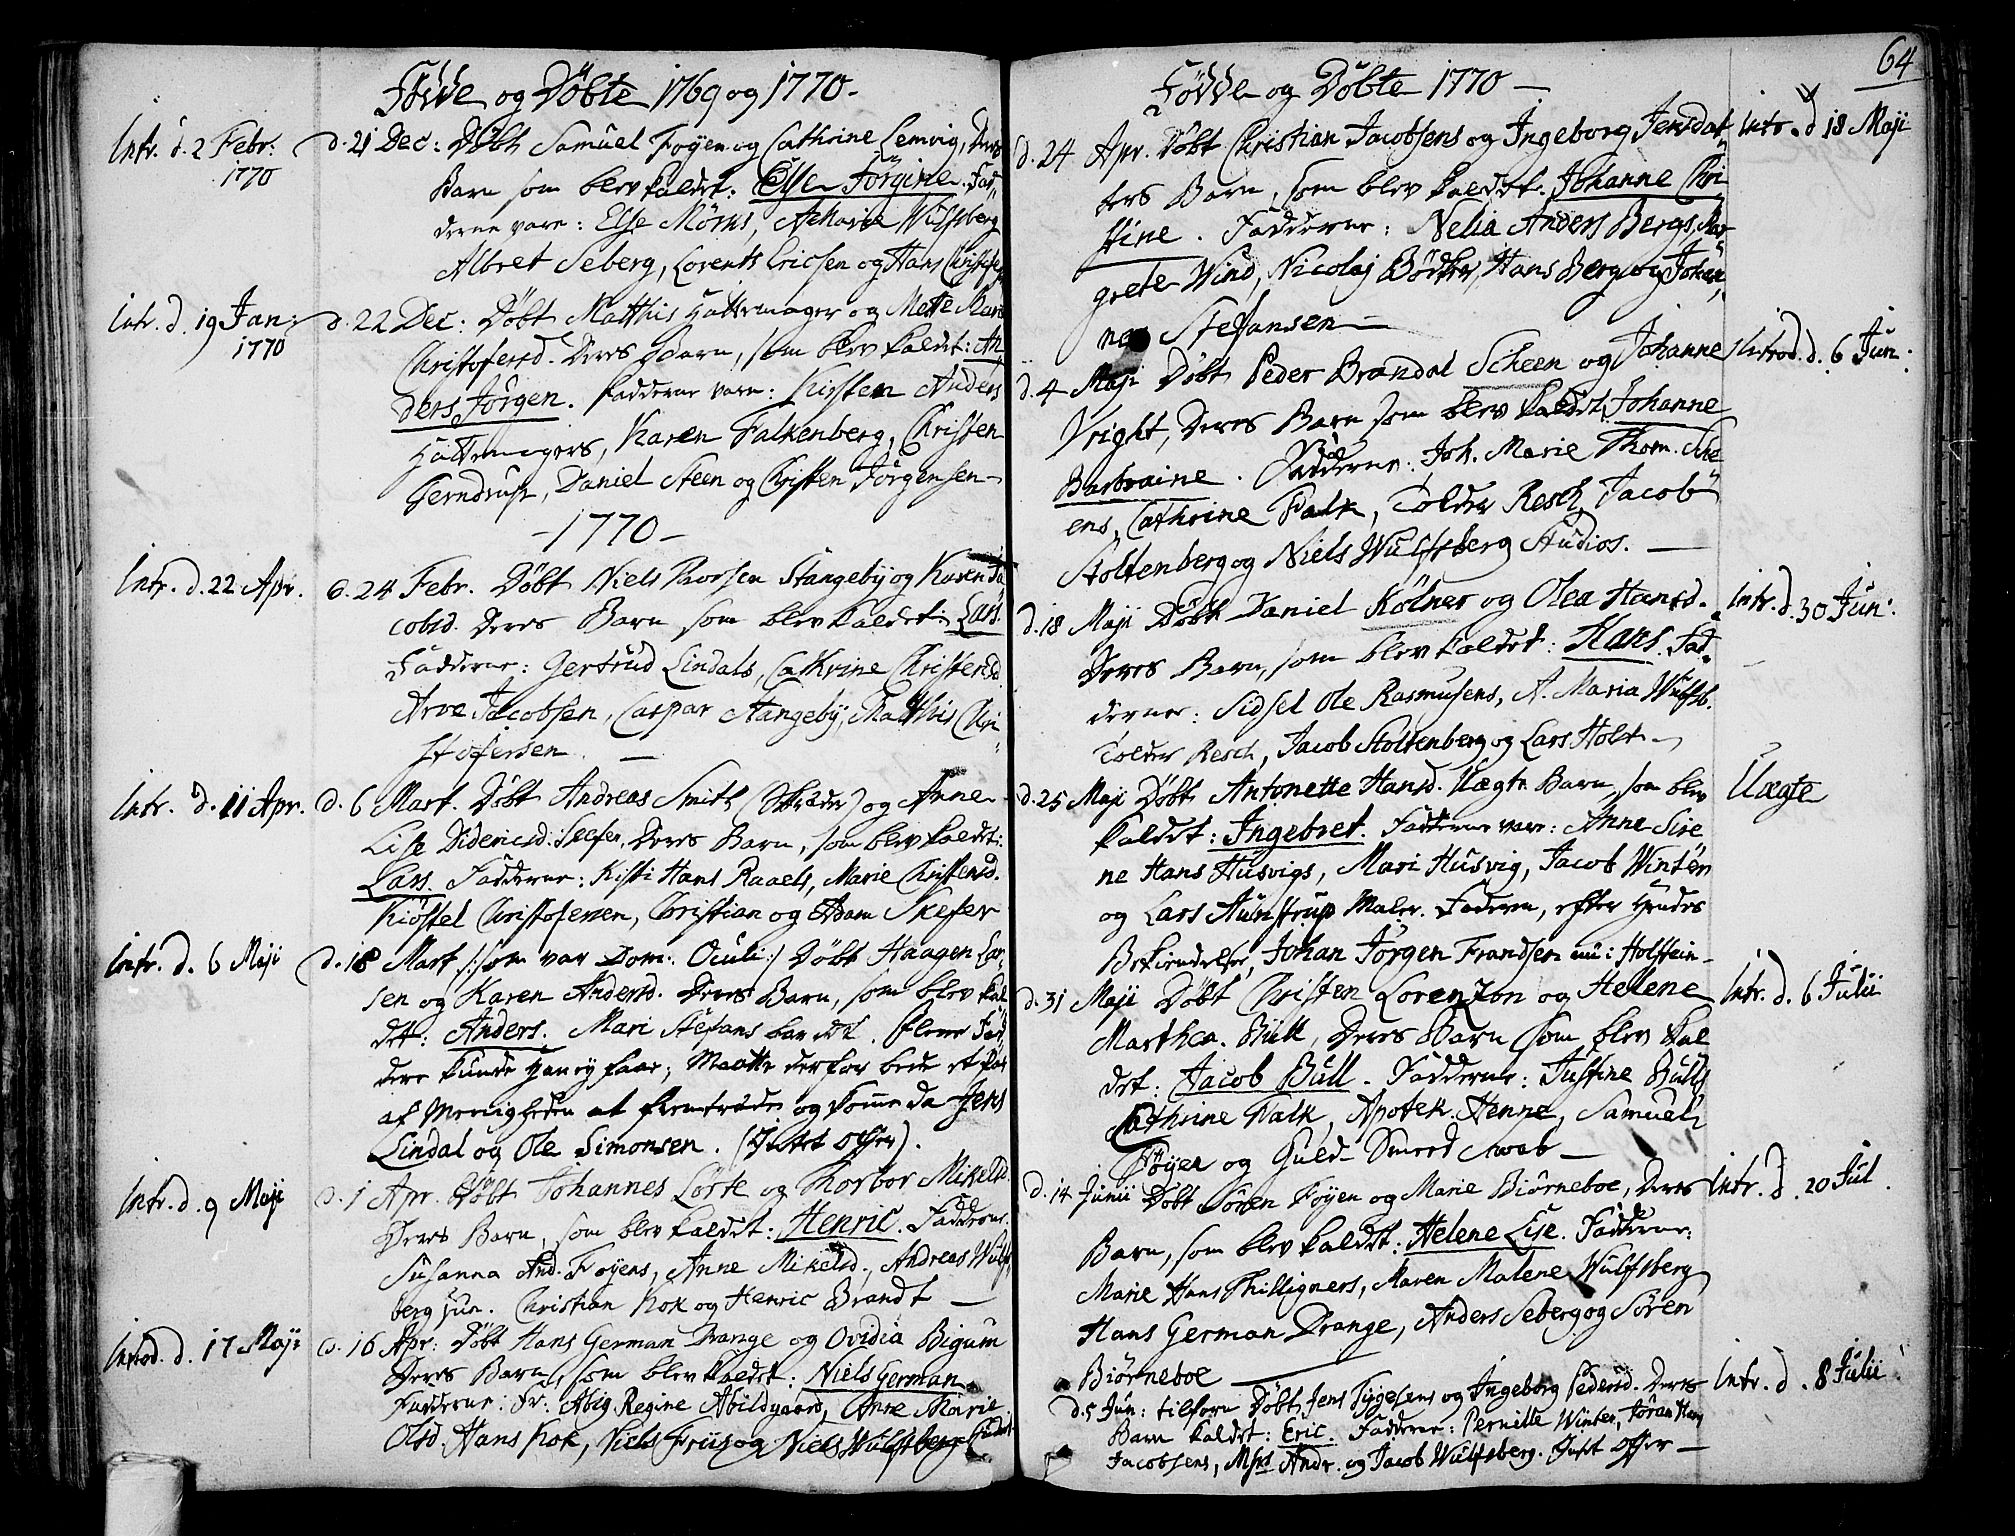 Fødde og Döbte 1769 og 1770-
Intr. d. 2 Febr:
1770
d. 21 Dec: Döbt Samuel Foyen og Cathrine Lemvig, Deres
Barn som blev kaldet: Else Jörgine. Fad,,
derne vare: Else Mörks, A Maria Wulfsberg
Albret Seberg, Lorents Ericsen og Hans Christofers
Intr. d. 19 Jan:
1770
d. 22 Dec: Döbt Matthis Hattemager og Mette Mari
Christofersd. Deres Barn, som blev kaldet: An,
ders Jörgen. Fadderne vare: Kirsten Anders
Hattemagers, Karen Falkenberg, Christen
Gerndrup, Daniel Steen og Christen Jörgensen-
-1770-
Intr. d. 22 Apr.
d. 24 Febr. Döbt Niels Povelsen Stangeby og Karen Ja
cobsd. Deres Barn som blev kaldet: Lars.
Fadderne: Gertrud Lindals, Cathrine Christensd.
Arve Jacobsen, Caspar Stangeby, Matthis Chri
stofersen. —
Intr. d. 11 Apr.
d. 6 Mart. Döbt Andreas Smith (Skræder) og Anne
Lise Didericsd: Skefer, Deres Barn, som blev kaldet:
Lars. Fadderne: Kisti Hans Raaels, Marie Christensd.
Kiöstel Christofersen, Christian og Adam Skefer
Intr. d. 6 Maji
d. 18 Mart /:som var Dom: Oculi:/ Döbt Haagen Lar,
sen og Karen Andersd. Deres Barn, som blev kal
det: Anders. Mari Stefans bar det. Flere Fad,
dere kunde Han ey faae; Maatte derfor bede et Par
af Menigheden at fremtræde og komme da Jens
Lindal og Ole Simonsen. (Intet Offer).
Intr. d. 9 Maji
d. 1 Apr. Döbt Johannes Lörte og Thorbor Mikelsd.
Deres Barn, som blev kaldet: Henric. Fadderne.
Susanna And. Foyens, Anne Mikelsd., Andreas Wulfs
berg jun. Christian Kok og Henric Brandt —
Introd. d. 17 Maji
d. 16 Apr: Döbt Hans German Drange og Ovidia Bigum
Deres Barn, som blev kaldet: Niels German.
Fadderne: Fr: Abig Regine Abildgaard, Anne Marie
Olsd. Hans Kok, Niels Friis og Niels Wulfsberg
64
Födde og Döbte 1770 —
d. 24 Apr. Döbt Christian Jacobsens og Ingeborg Jensdat
Intr. d 18 Maji
ters Barn, som blev kaldet. Johanne Chri
stine. Fadderne: Nelia Anders Bergs, Mar
grete Wind, Nicolaj Bödker, Hans Berg og Johan,
nes Stefansen —
d. 4 Maji Döbt Peder Brandal Scheen og Johanne
Introd. d. 6 Jun:
Vright, Deres Barn som blev kaldet, Johanne
Barbraine. Fadderne: Joh. Marie Thom. Sche
ens, Cathrine Falk, Tolder Resch, Jacob
Stoltenberg og Niels Wulfsberg Studios. —
d. 18 Maji Döbt Daniel Kölner og Olea Hansd.
Intr. d. 30 Jun:
Deres Barn, som blev kaldet: Hans. Fad,
derne: Sidsel Ole Rasmusens, A. Maria Wulfsb.
Tolder Resch, Jacob Stoltenberg og Lars Holst —
d. 25 Maji Döbt Antonette Hansd. Uægte Barn, som blev
Uægte
kaldet: Ingebret. Fadderne vare: Anne Sire
ne Hans Husvigs, Mari Husvig, Jacob Winter
og Lars Aunstrup Maler. Faderen, efter Hendes
Bekiendelse, Johan Jörgen Frandsen nu i Holstein-
d. 31 Maji Döbt Christen Lorenzon og Helene
Intr. d. 6 Julii
Marthea Bull, Deres Barn som blev kal
det: Jacob Bull. Fadderne: Justine Bulls
Cathrine Falk, Apotek. Henne, Samuel
Föyen og Guld-Smeed Swab —
d. 14 Junii Döbt Sören Foyen og Marie Biörneboe, Deres
Intr. d. 20 Jul.
Barn, som blev kaldet: Helene Lise. Fadderne:
Marie Hans Thilligners, Maren Malene Wulfsberg
Hans German Drange, Anders Seberg og Sören
Biörneboe —
d. 5 Jun: tilforn Döbt Jens Tygesens og Ingeborg Pedersd. Deres
Intr. d. 8 Julii
Barn kaldet: Eric. Fadderne: Pernille Winter, Jöran Hans
Jacobsens, Msrs Andr. og Jacob Wulfsberg. Intet Offer —